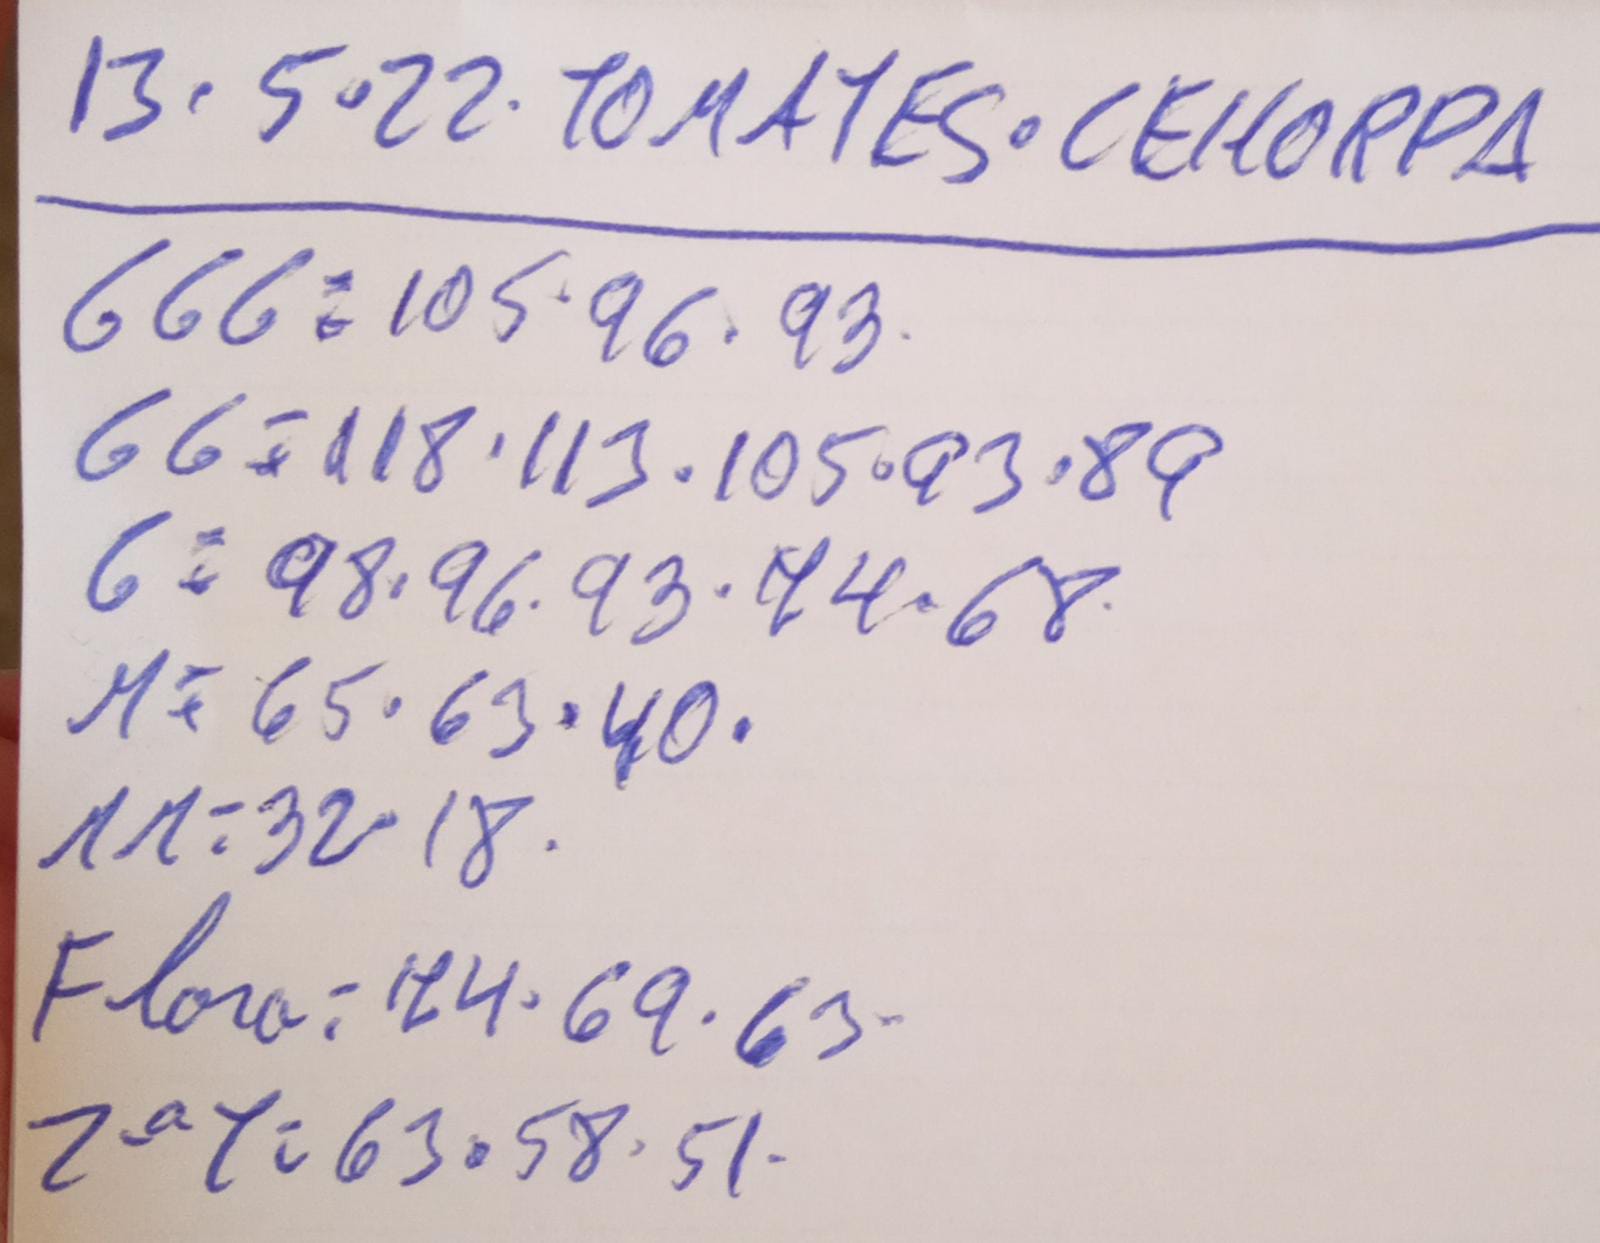 13. 5.22. TOMATES. CEHORPA
GGG = 105. 96. 93.
GG = 118. 113. 105. 93. 89
G = 98. 96. 93. 74. 68.
M = 65. 63. 40.
MM = 32. 18.
Flora = 74. 69. 63.
2ª T = 63. 58. 51.